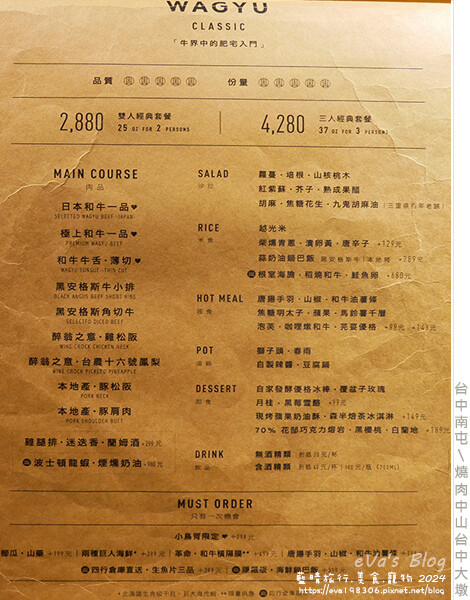 WAGYU
CLASSIC
「牛界中的肥宅入門」
品質
份量
2,880 雙人經典套餐
25 OZ FOR 2 PERSONS
4,280 三人經典套餐
37 OZ FOR 3 PERSONS
MAIN COURSE
肉品
日本和牛一品♥
SELECTED WAGYU BEEF-JAPAN
極上和牛一品♥
PREMIUM WAGYU BEEF
和牛牛舌·薄切♥
WAGYU TONGUE-THIN CUT
黑安格斯牛小排
BLACK ANGUS BEEF SHORT RIBS
黑安格斯角切牛
SELECTED DICED BEEF
醉翁之意·雞松阪
WING CROCK CHICKEN NECK
醉翁之意·台農十六號鳳梨
WING CROCK PICKLED PINEAPPLE
本地產·豚松阪
PORK NECK
本地產·豚肩肉
PORK SHOULDER BUTT
雞腿排·迷迭香·蘭姆酒 +299元
波士頓龍蝦·煙燻奶油 +980元
SALAD
沙拉
蘿蔓·培根·山核桃木
紅紫蘇·芥子·熟成果醋
胡麻·焦糖花生·九鬼胡麻油
RICE
米食
越光米
柴燻青蔥·漬卵黃·唐辛子 +129元
蒜奶油鍋巴飯 黑安格斯牛|本地豬 +289元
根室海膽·稻燒和牛·鮭魚卵 +680元
HOT MEAL
唐揚手羽·山椒·和牛油薯條
焦糖明太子·蘋果·馬鈴薯千層
泡芙·咖哩燉和牛·芫荽優格
POT
湯鍋
獅子頭·春雨
自製辣醬·豆腐鍋
DESSERT
甜食
自家發酵優格冰棒·覆盆子玫瑰
月桂·黑莓雪酪 +99元
現烤蘋果奶油酥·森半焙茶冰淇淋 +149元
70% 花部巧克力熔岩·黑櫻桃·白蘭地 +189元
DRINK
飲品
無酒精類
含酒精類
MUST ORDER
只有一次機會
小鳥胃限定♥
eVa's Blog
藍晴旅行.美食.寵物 2024
https://eva198306.com/blog
台中南屯\燒肉中山台中大墩